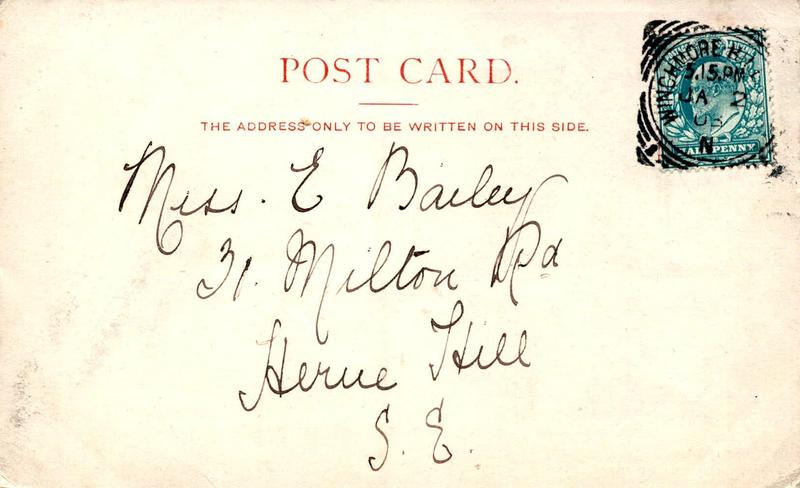 POST CARD.
THE ADDRESS ONLY TO BE WRITTEN ON THIS SIDE.
WINCHMORE HILL
5.15.PM
JA 2
N
PENNY
Miss. E Bailey
31. Milton Rd
Herne Hill
S. E.